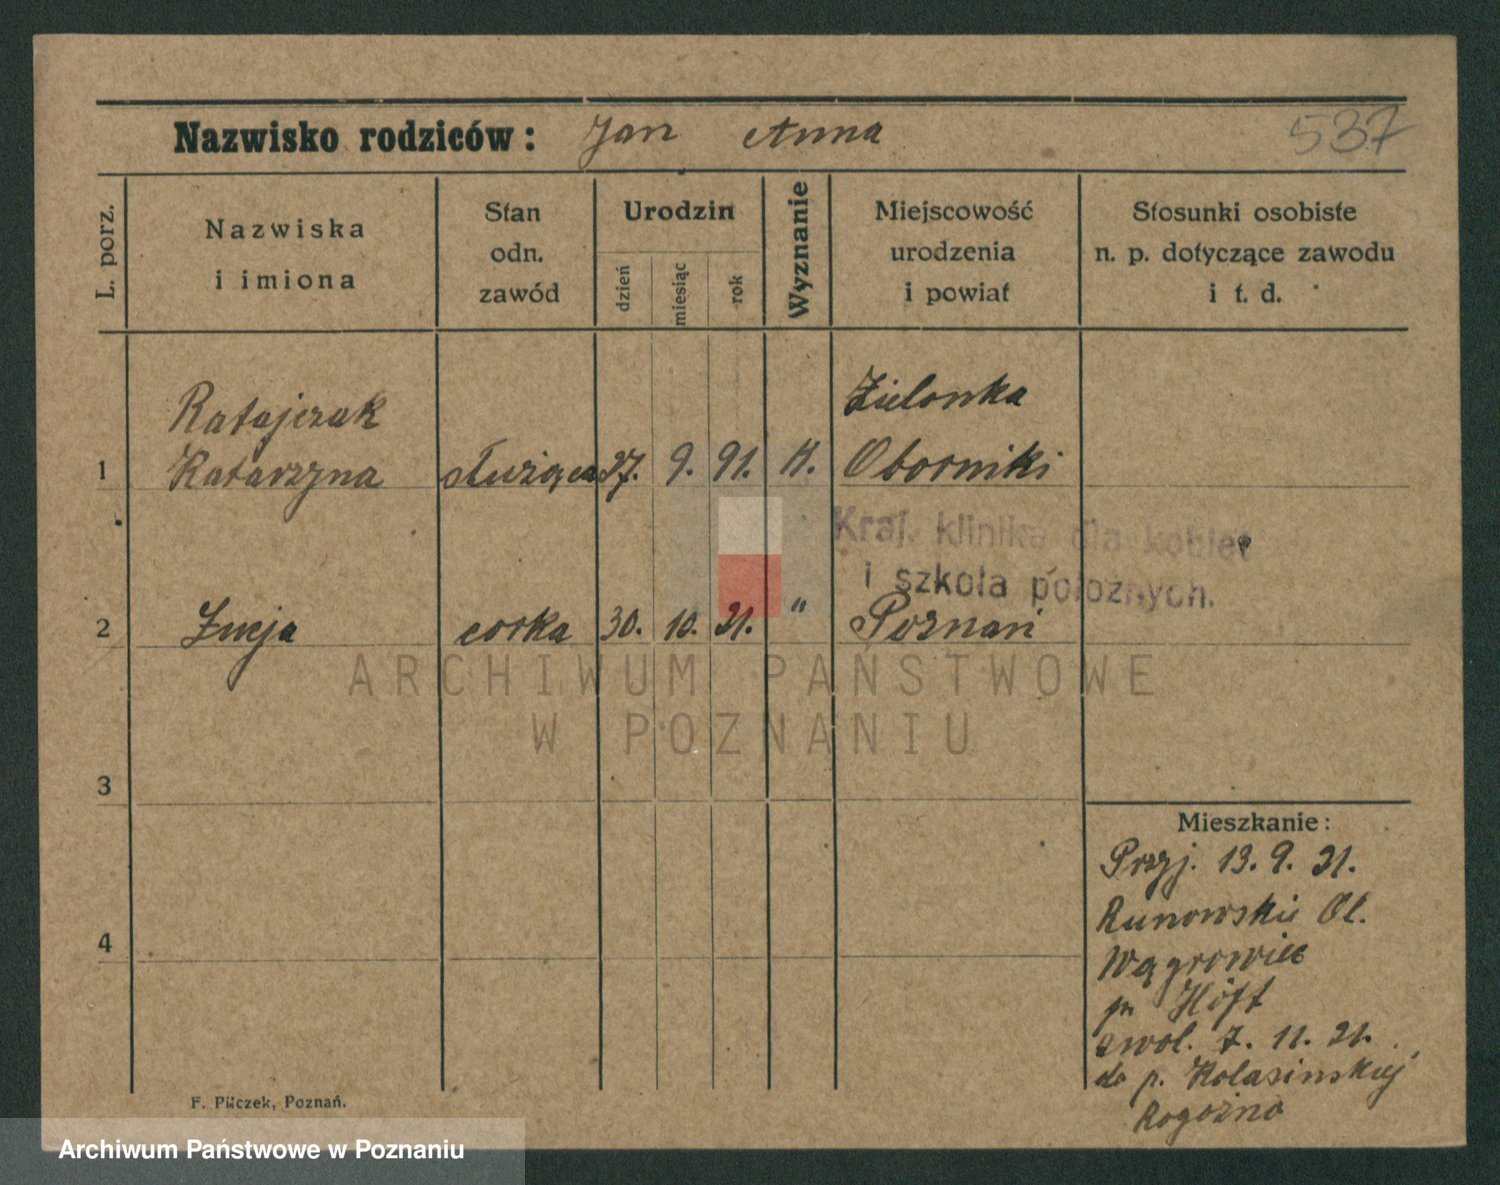 Nazwisko rodziców: Jan Anna 537
L. porz.
Nazwiska
i imiona
Stan
odn.
zawód
Urodzin
dzień miesiąc rok
Wyznanie
Miejscowość
urodzenia
i powiat
Stosunki osobiste
n. p. dotyczące zawodu
i t. d.
Ratajczak Zielonka
1 Katarzyna służąca 27. 9. 91. K. Oborniki
Kraj. klinika dla kobiet
i szkoła położnych.
2 Łucja córka 30. 10. 21. " Poznań
ARCHIWUM PAŃSTWOWE
W POZNANIU
3
Mieszkanie:
Przyj. 13. 9. 21.
Runowskie Ol.
4 Wągrowiec
pr. Höft
zwol. 7. 11. 21.
do p. Kolasinskiej
Rogoźno
F. Pilczek, Poznań.
Archiwum Państwowe w Poznaniu